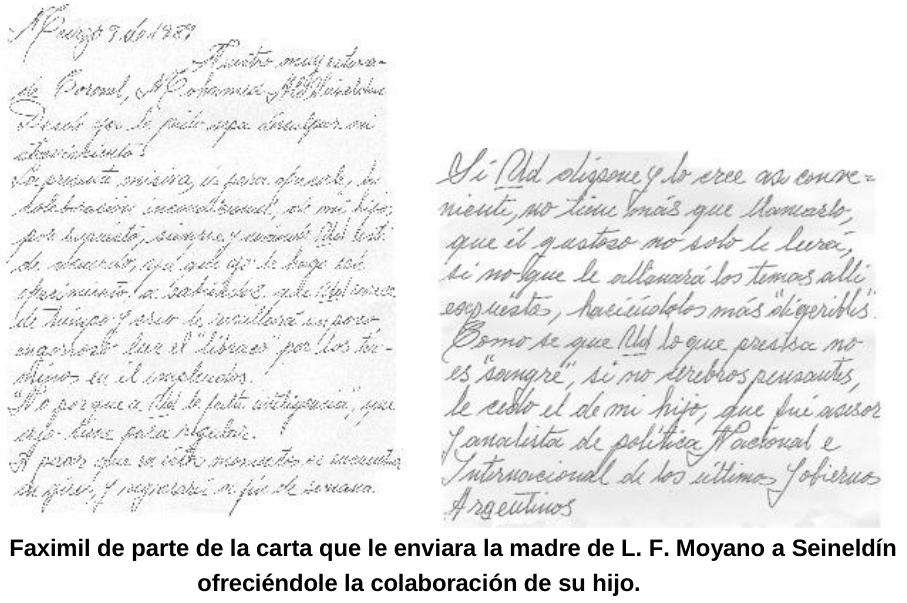 Marzo 9 de 1989
Nuestro muy estima-
do Coronel, Mohamed Alí Seineldín
Desde ya le pido sepa disculpar mi
atrevimiento:
La presente misiva, es para ofrecerle, la
colaboración incondicional, de mi hijo,
por supuesto, siempre y cuando Ud esté
de acuerdo, ya que yo le hago este
ofrecimiento a sabiendas que Ud carece
de tiempo y eso le resultará un poco
engorroso leer el "libraco" por los tér-
minos en él empleados.
"No porque a Ud le falte inteligencia", que
de eso tiene para regalar.
A pesar que en estos momentos se encuentra
en gira, y regresará a fin de semana.
Si Ud dispone y lo cree asi conve=
niente, no tiene más que llamarlo,
que él gustoso no solo le leerá,
si no que le allanará los temas alli
expuestos, haciéndolos más "digeribles".
Como se que Ud lo que precisa no
es "sangre", si no cerebros pensantes,
le cedo el de mi hijo, que fué asesor
y analista de política Nacional e
Internacional de los últimos Gobiernos
Argentinos
Faximil de parte de la carta que le enviara la madre de L. F. Moyano a Seineldín
ofreciéndole la colaboración de su hijo.